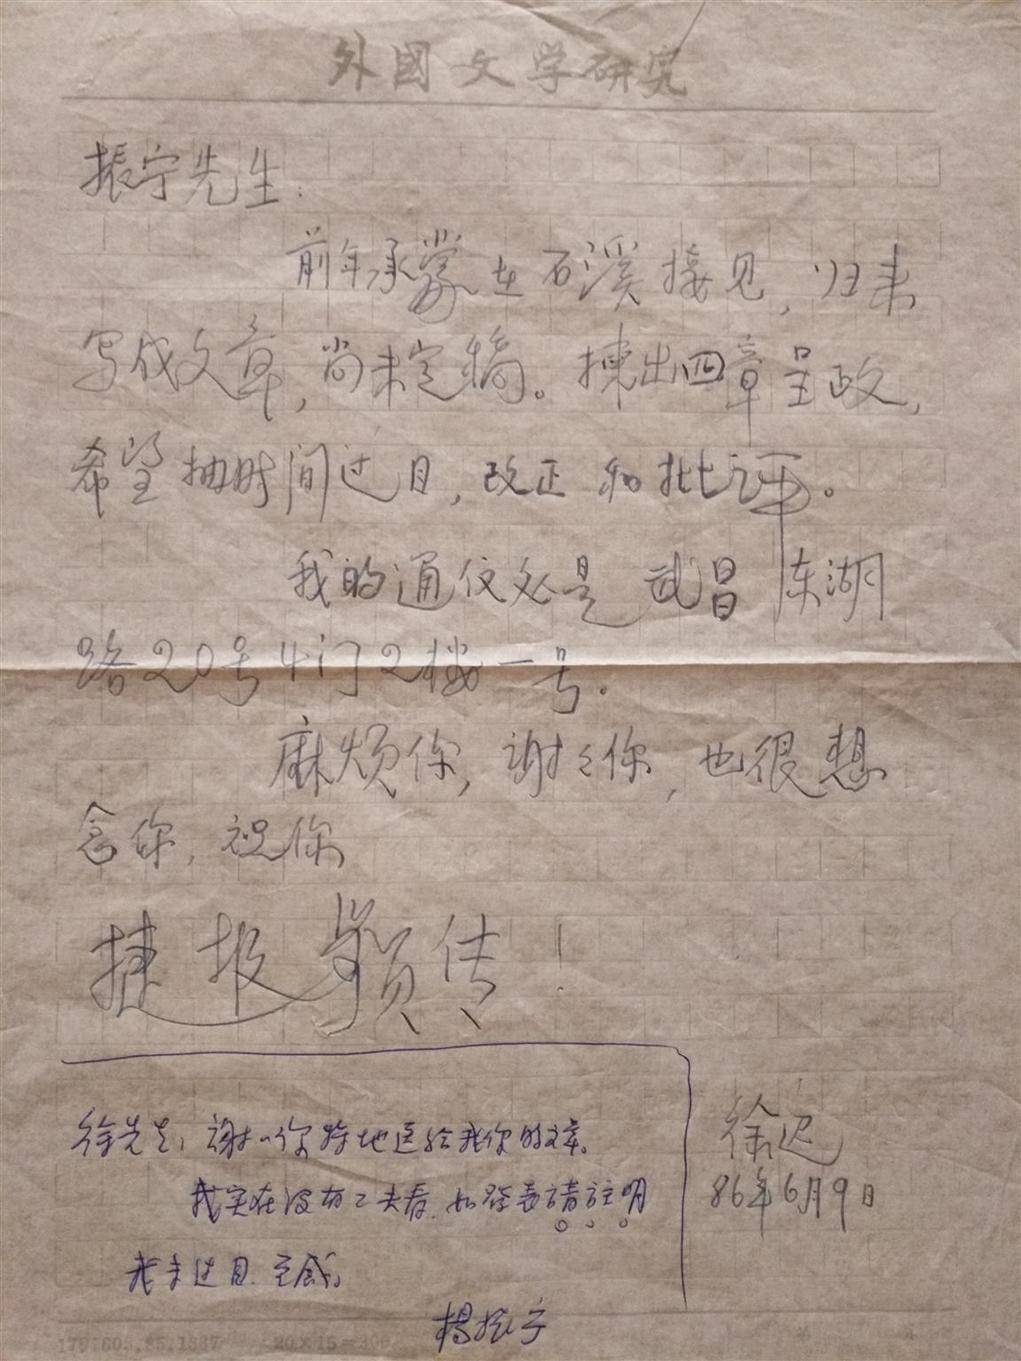 外國文学研究
振宁先生:
前年承蒙在石溪接见,归来
写成文章,尚未定稿。拣出四章呈政,
希望抽时间过目,改正和批评。
我的通仪处是武昌东湖
路20号4门2楼一号。
麻烦你,谢々你,也很想
念你,祝你
捷报频传!
徐迟
86年6月9日
徐先生:谢々你特地送给我你的文章。
我实在没有工夫看.如发表请註明
我未过目.至感。
楊振宁